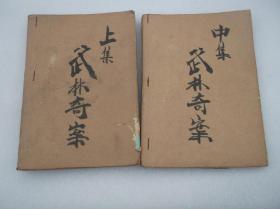 上集
武林奇案
中集
武林奇案